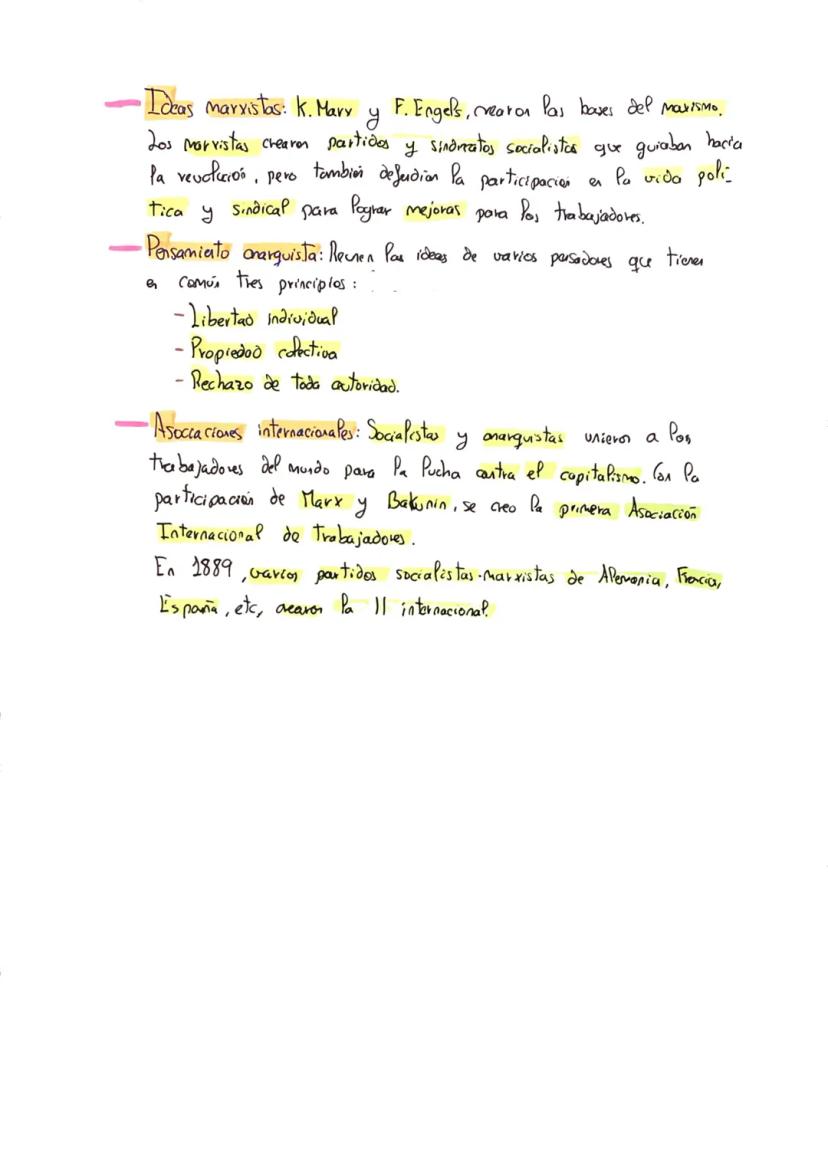 Ideas marxistas: K. Marx y F. Engels, crearon las bases del marxismo.
Los marxistas crearon partidos y sindicatos socialistas que guiaban hacia
la revolución, pero también defendian la participación en la vida polí-
tica y sindical para lograr mejoras para los trabajadores.
Pensamiento anarquista: Reunen las ideas de varios pensadores que tienen
en común tres principios:
- Libertad individual
- Propiedad colectiva
- Rechazo de toda autoridad.
Asociaciones internacionales: Socialistas y anarquistas unieron a los
trabajadores del mundo para la lucha contra el capitalismo. Con la
participación de Marx y Bakunin, se creo la primera Asociación
Internacional de Trabajadores.
En 1889, varios partidos socialistas-marxistas de Alemania, Francia,
España, etc, crearon la II internacional.